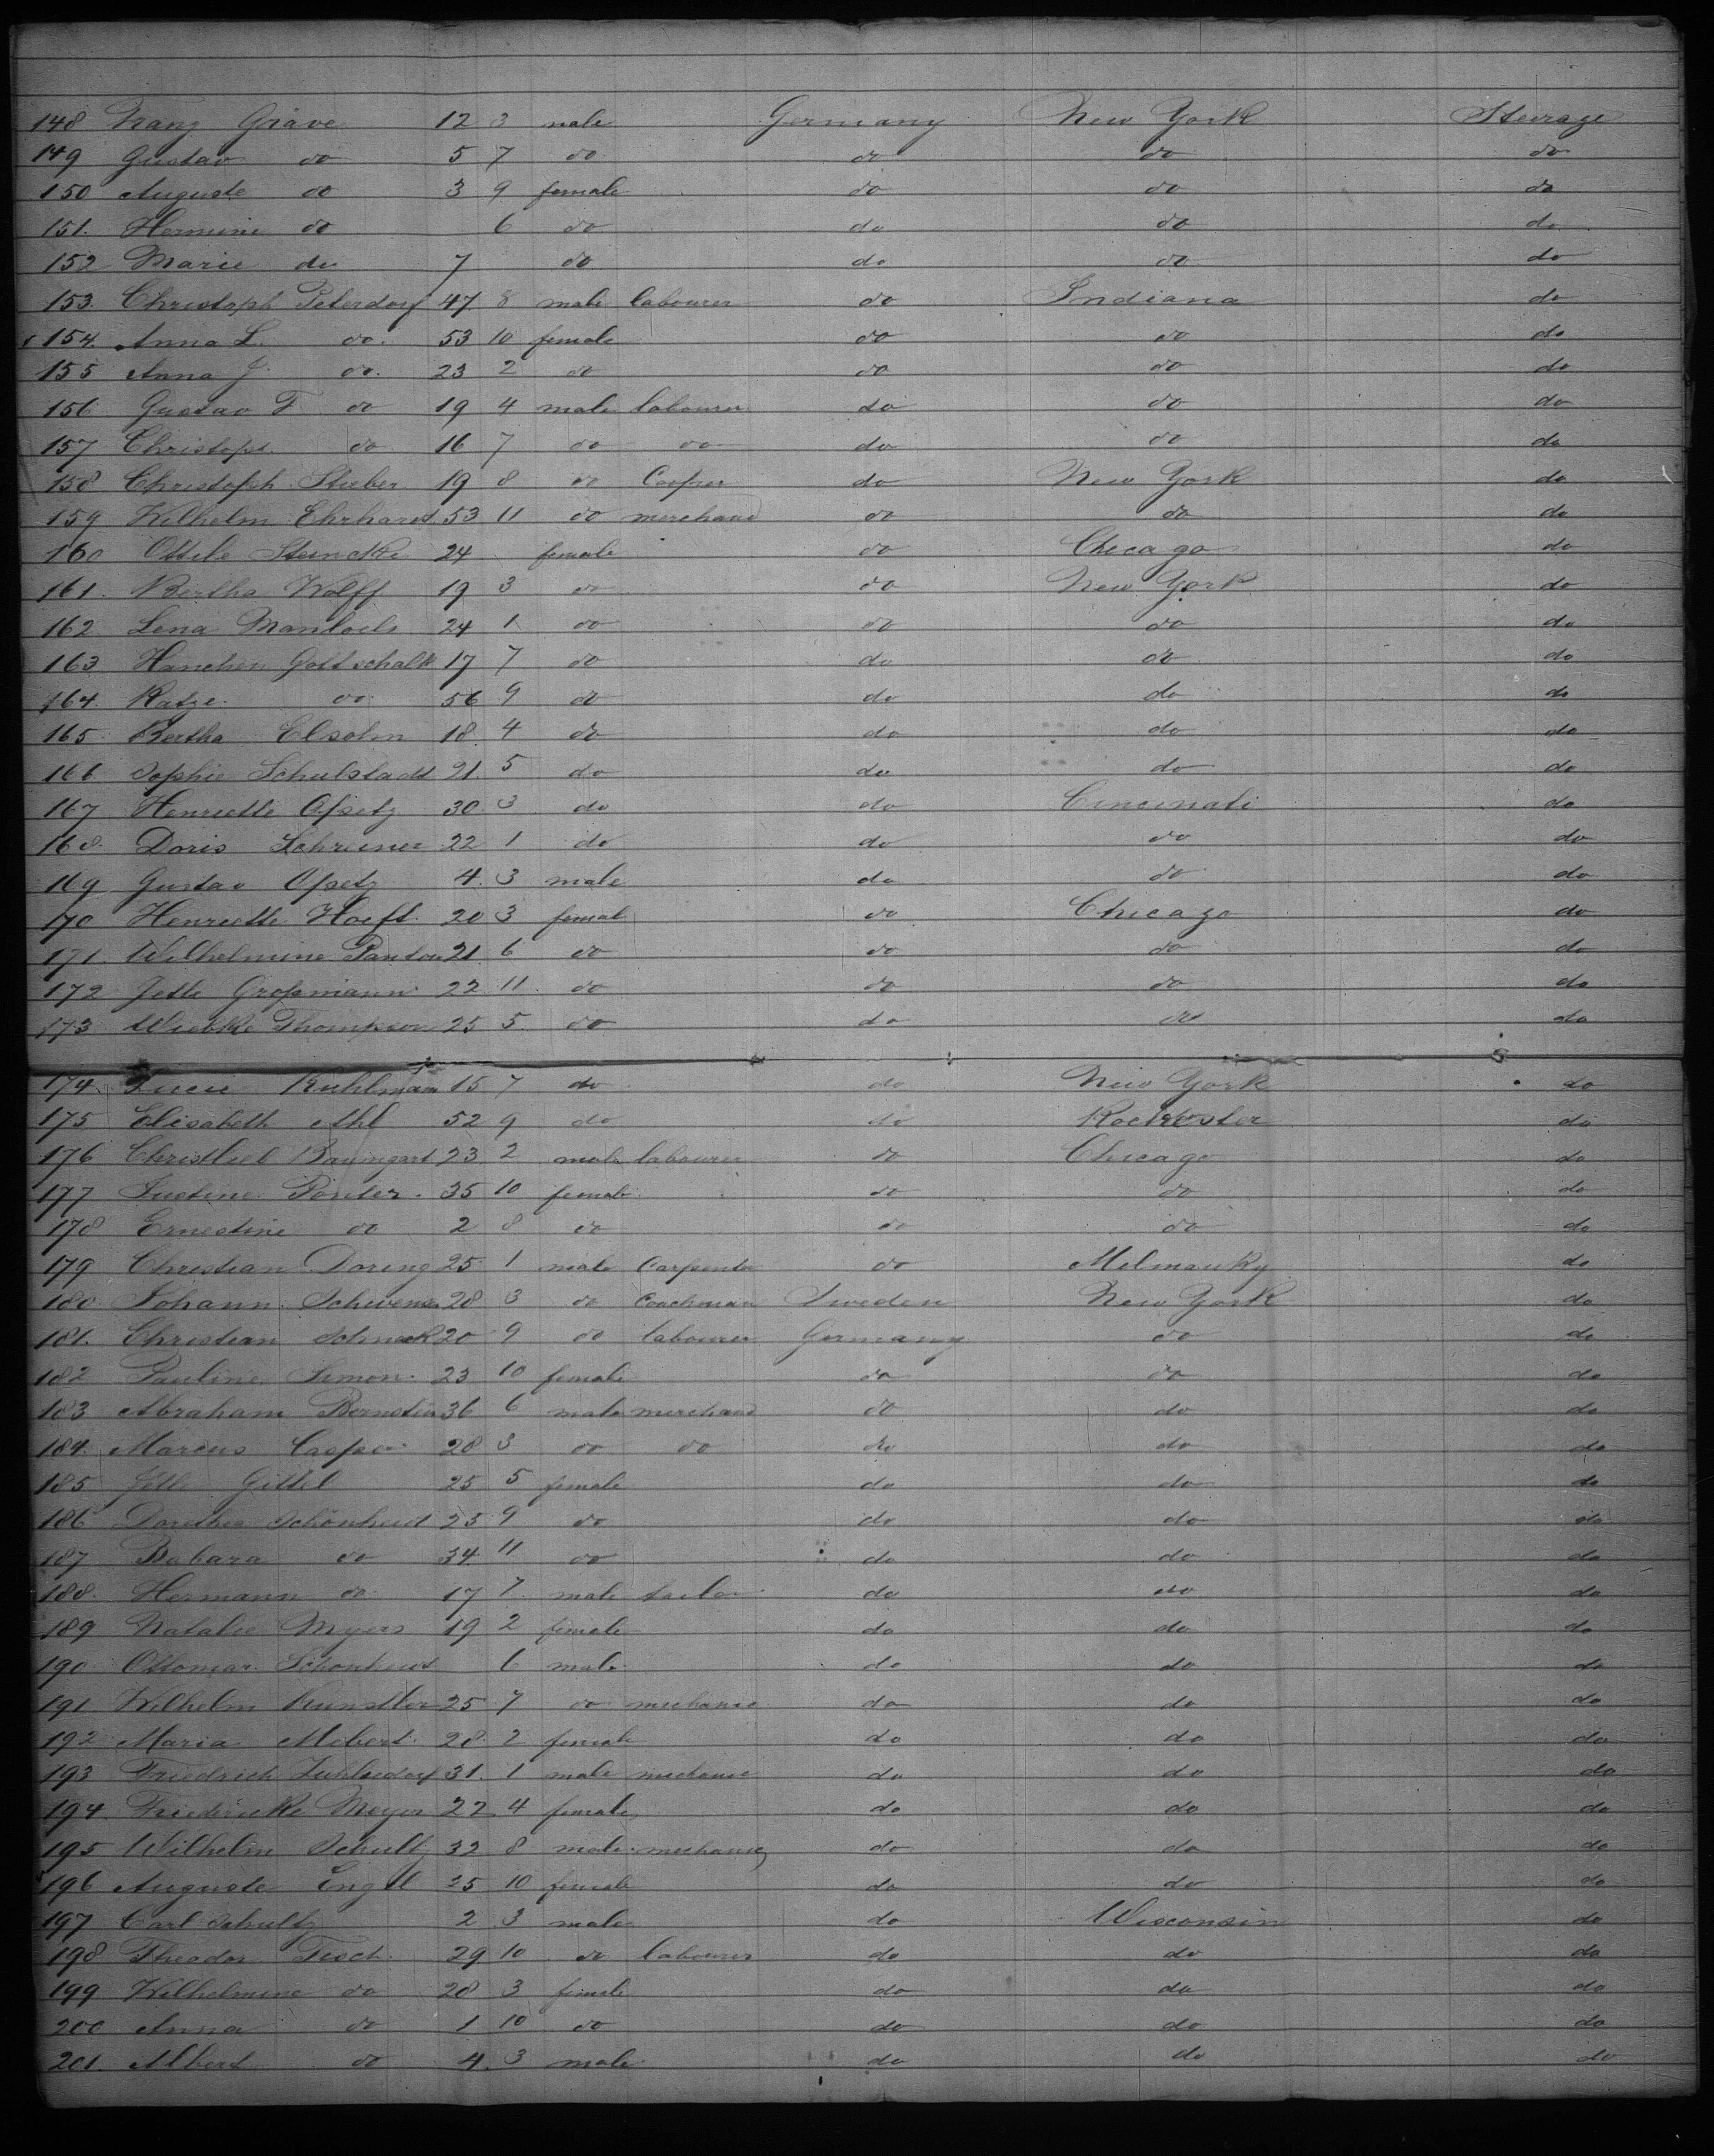 148 Franz Grave 12 3 male Germany New York Steerage
149 Gustav do 5 7 do do do do
150 Auguste do 3 9 female do do do
151. Hermine do 6 do do do do
152 Marie do 7 do do do do
153. Christoph Peterdorf 47 8 male labourer do Indiana do
154. Anna L. do. 53 10 female do do do
155 Anna J. do. 23 2 do do do do
156 Gustav F. do 19 4 male labourer do do do
157 Christoph do 16 7 do do do do do
158 Christoph Stuber 19 8 do Cooper do New York do
159 Wilhelm Ehrhardt 53 11 do merchand do do do
160 Ottile Steincke 24 female do Chicago do
161. Bertha Wolff 19 3 do do New York do
162 Lena 24 1 do do do do
163 Hanchen Gottschalk 17 7 do do do do
164. Katze do 56 9 do do do do
165. Bertha Elsohn 18 4 do do do do
166 Sophie Schulstadt 21. 5 do do do do
167 Henriette Opetz 30. 3 do do Cincinati do
168. Doris Schreiner 22 1 do do do do
169 Gustav Opetz 4. 3 male do do do
170 Henriette Hoeft. 20 3 femal do Chicago do
171. Wilhelmine 21. 6 do do do do
172 Jette Großmann 22 11. do do do do
173 Wiebke Thompson 25 5. do do do do
174 Lucie Kuhlmann 15 7 do do New York do
175 Elisabeth Ahl 52 9 do do Rochester do
176 Christlieb Baumgart 23 2 male labourer do Chicago do
177 Justine Ponter. 35 10 female do do do
178 Ernestine do 2 8 do do do do
179 Christian Doring 25 1 male Carpenter do Milmauky do
180 Johann 28 3 do Coachman Sweden New York do
181. Christian Schneck 20 9 do labourer Germany do do
182 Pauline Simon. 23 10 female do do do
183 Abraham Bernstein 36 6 male merchand do do do
184. Marcus Casper 28 3 do do do do do
185 Jette Gittel 25 5 female do do do
186 Dorethea Schönheid 25 9 do do do do
187 Babara do 34 11 do do do do
188. Hermann do 17 7. male tailor do do do
189 Natalie Myers 19 2 female do do do
190 Ottomar Schonheid 6 male do do do
191 Wilhelm Kunstler 25 7 do mechanic do do do
192 Maria Mebert. 28. 2 female do do do
193 Friedrich Zuhlsdorf 31. 1 male mechanic do do do
194 Friedericke Meyer 22 4 female do do do
195 Wilhelm Schultz 32 8 male mechanic do do do
196 Auguste Engel 25 10 female do do do
197 Carl Schultz 2 3 male do Wisconsin do
198 Theodor Tesch 29 10 do labourer do do do
199 Wilhelmine do 28 3 female do do do
200 Anna do 1 10 do do do do
201. Albert do 4. 3 male do do do